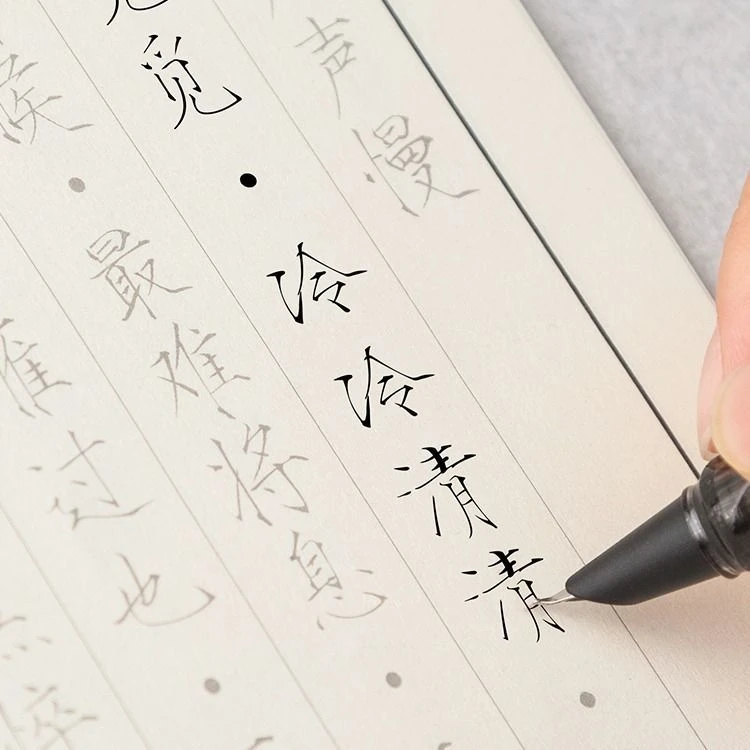 声慢
觅·冷冷清清·
候·最难将息·
雁过也·
悴